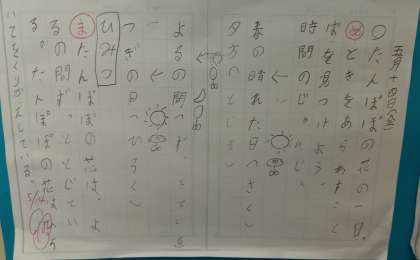 五月十四日(金)
○たんぽぽの花の一日
め ときをあらわすこと
ばを見つけよう。
時間のじゅんじょ
春の晴れた日(さく)
夕方(とじる)
よるの間
つぎの日(ひらく)
ひみつ
ま たんぽぽの花は、よ
るの間ずっととじてい
る。たんぽぽの花は
いてをくりかえしている。
5/14